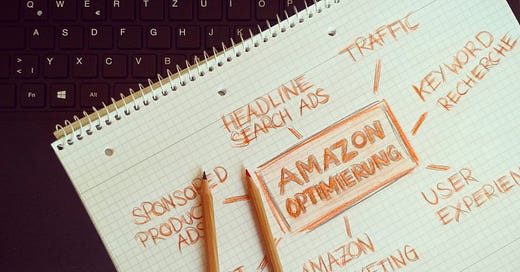 Q W E R T Z U I
A S D F G H J K
Y X C V B
Fn Alt
TRAFFIC
KEYWORD
RECHERCHE
HEADLINE
SEARCH ADS
AMAZON
OPTIMIERUNG
SPONSORED
PRODUCT
ADS
USER
EXPERIEN
AMAZON